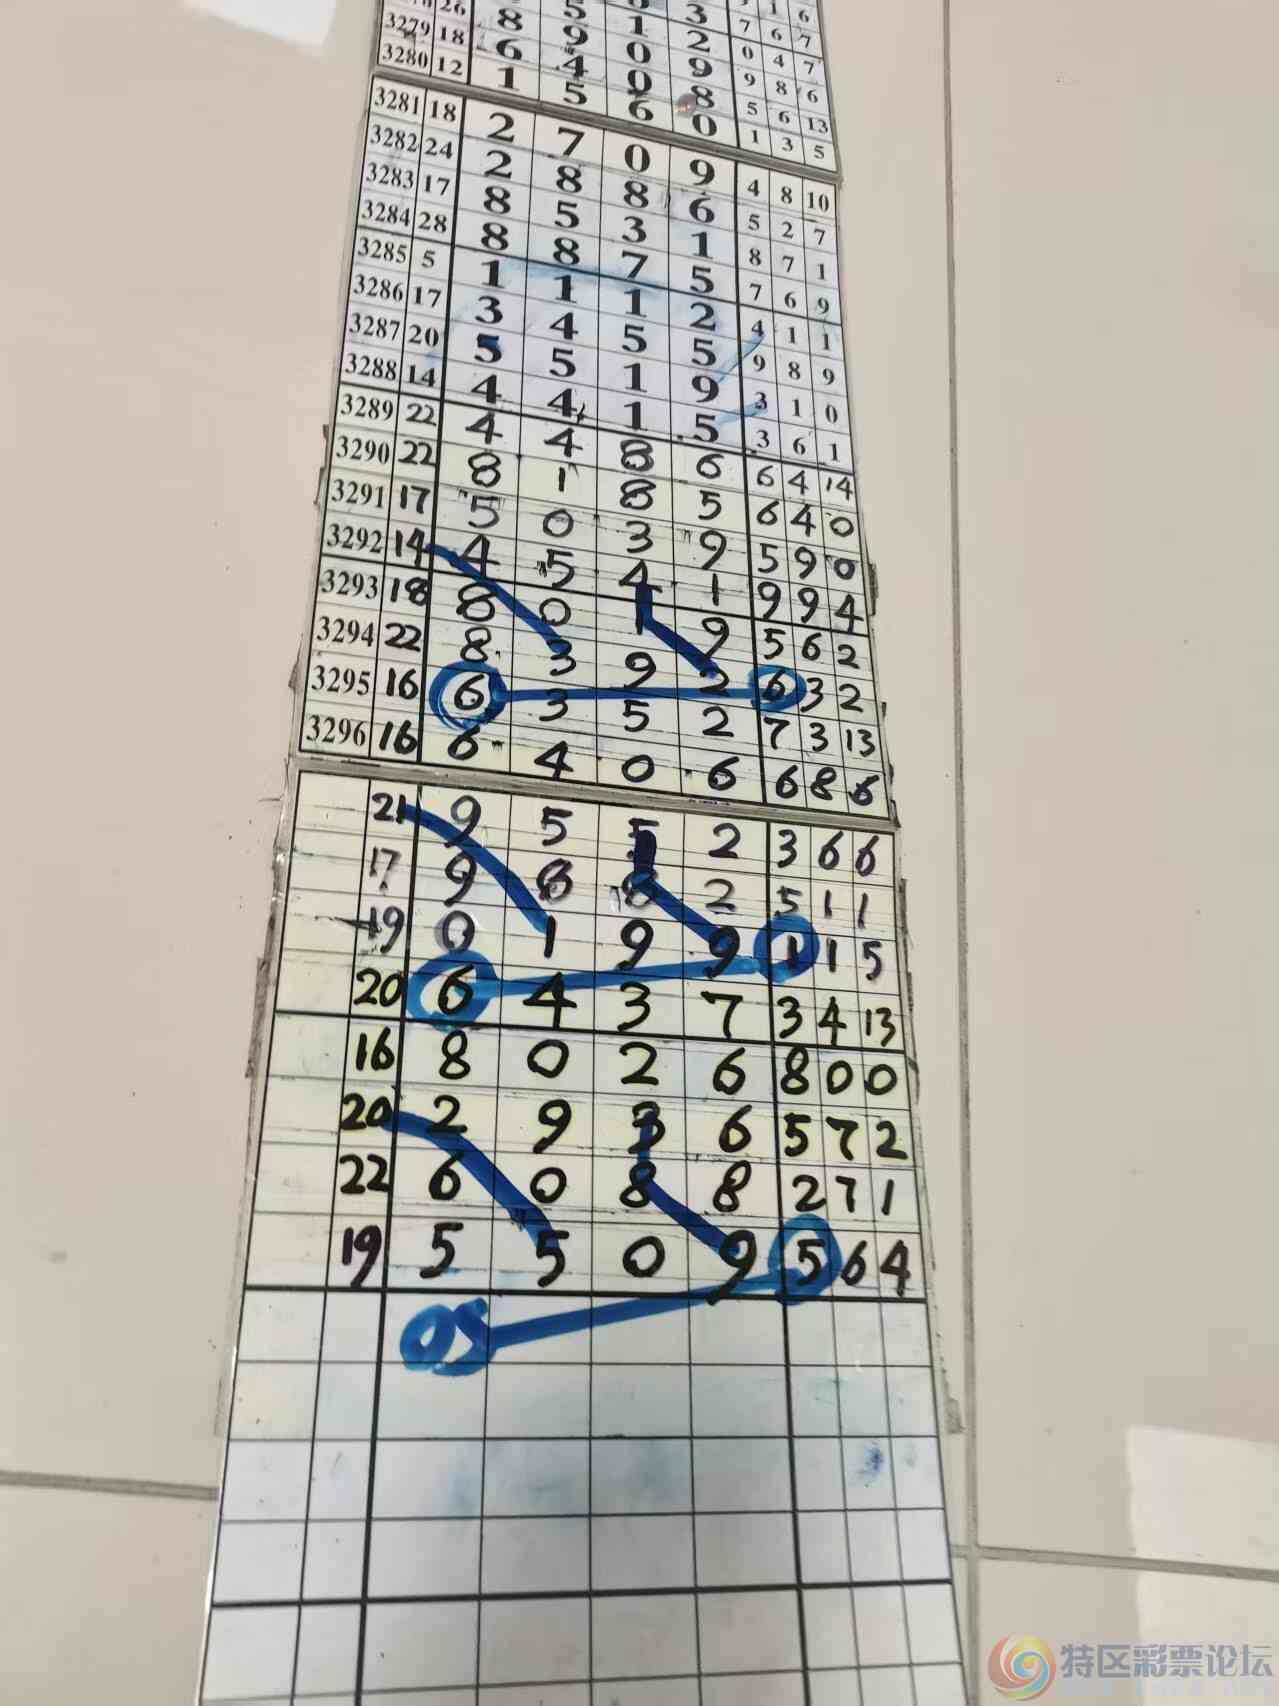 26 8 9 0 9 9 8 6
3279 18 6 4 0 8 5 6 13
3280 12 1 5 6 0 1 3 5
3281 18 2 7 0 9 4 8 10
3282 24 2 8 8 6 5 2 7
3283 17 8 5 3 1 8 7 1
3284 28 8 8 7 5 7 6 9
3285 5 1 1 1 2 4 1 1
3286 17 3 4 5 5 9 8 9
3287 20 5 5 1 9 3 1 0
3288 14 4 4 1 5 3 6 1
3289 22 4 4 8 6 6 4 14
3290 22 8 1 8 5 6 4 0
3291 17 5 0 3 9 5 9 0
3292 14 4 5 4 1 9 9 4
3293 18 8 0 1 9 5 6 2
3294 22 8 3 9 2 6 3 2
3295 16 6 3 5 2 7 3 13
3296 16 6 4 0 6 6 8 6
21 9 5 5 2 3 6 6
17 9 8 8 2 5 1 1
19 0 1 9 9 1 1 5
20 6 4 3 7 3 4 13
16 8 0 2 6 8 0 0
20 2 9 3 6 5 7 2
22 6 0 8 8 2 7 1
19 5 5 0 9 5 6 4
05
特区彩票论坛